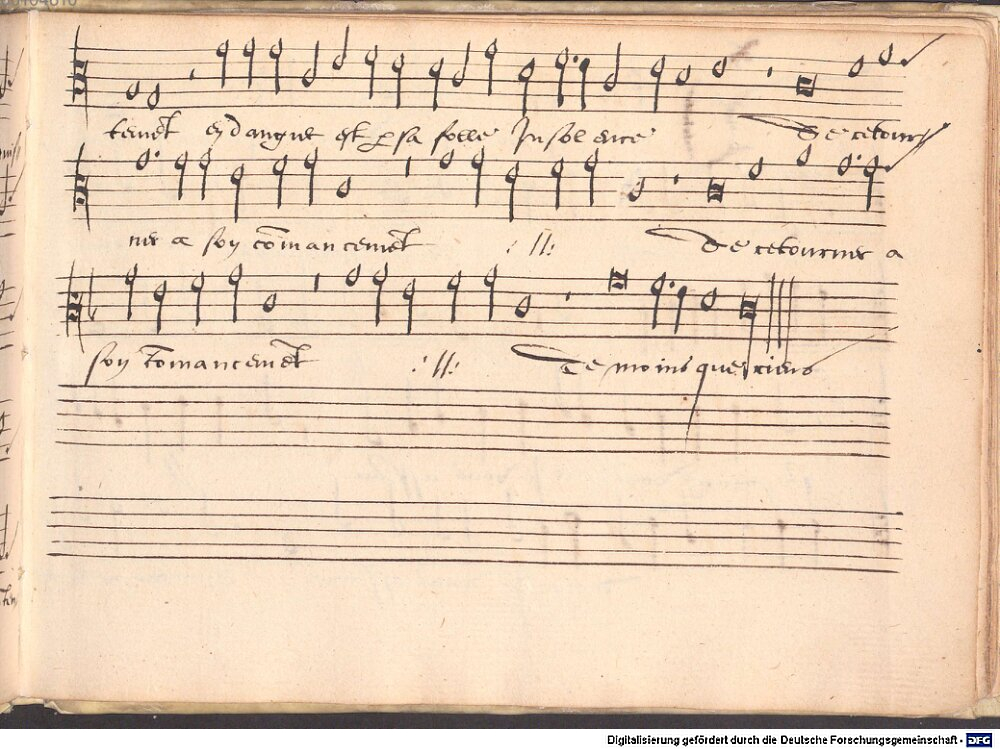 en danguer est p sa folle Insolence De retour
ner a son cōmancemēt :||: De retourner a
son cōmancemēt :||: De moins que riens
Digitalisierung gefördert durch die Deutsche Forschungsgemeinschaft - DFG